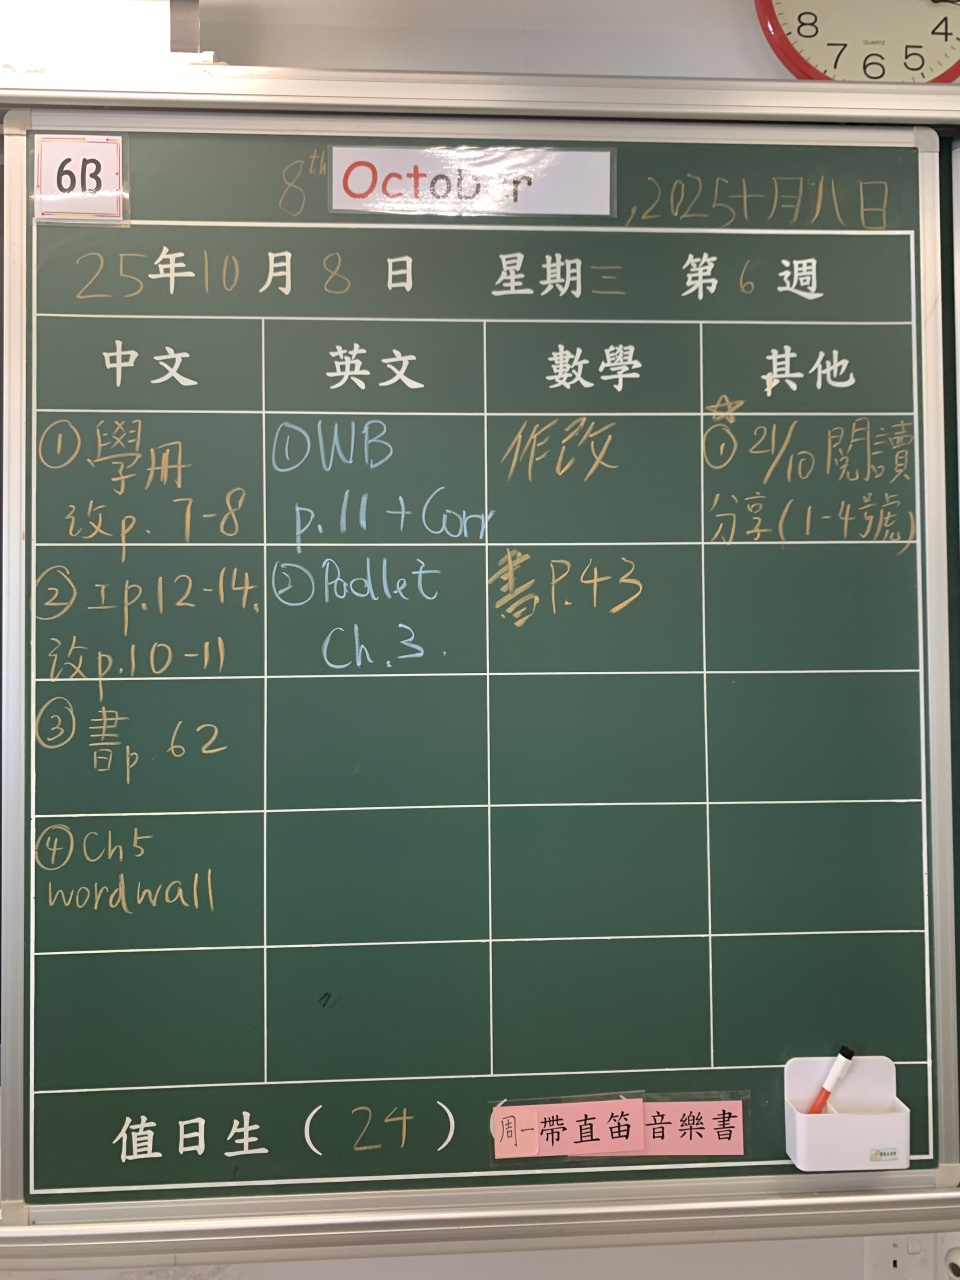 8 7 6 5 4
QUARTZ
6B
8th October, 2025十月八日
25年10月8日 星期三 第6週
中文 英文 數學 其他
①學冊
改p. 7-8
②工p.12-14.
改p.10-11
③書p 62
④Ch5
wordwall
①WB
p.11+Corr
②Padlet
Ch.3.
作改
書P.43
☆
①21/10閱讀
分享(1-4號)
值日生(24) 周一帶直笛 音樂書